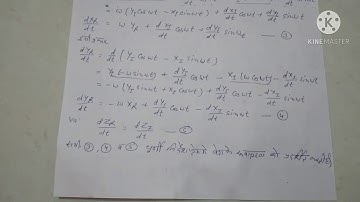 = ω (Y_I cosωt − X_I sinωt) + dX_I/dt cosωt + dY_I/dt sinωt
dX_R/dt = ω Y_R + dX_I/dt cosωt + dY_I/dt sinωt — ③
dY_R/dt = d/dt (Y_I cosωt − X_I sinωt)
= Y_I (−ω sinωt) + dY_I/dt cosωt − X_I (ω cosωt) − dX_I/dt sinωt
= −ω (Y_I sinωt + X_I cosωt) + dY_I/dt cosωt − dX_I/dt sinωt
dY_R/dt = −ω X_R + dY_I/dt cosωt − dX_I/dt sinωt — ④
dZ_R/dt = dZ_I/dt — ⑤
③, ④ व ⑤ घूर्णी
KINEMASTER